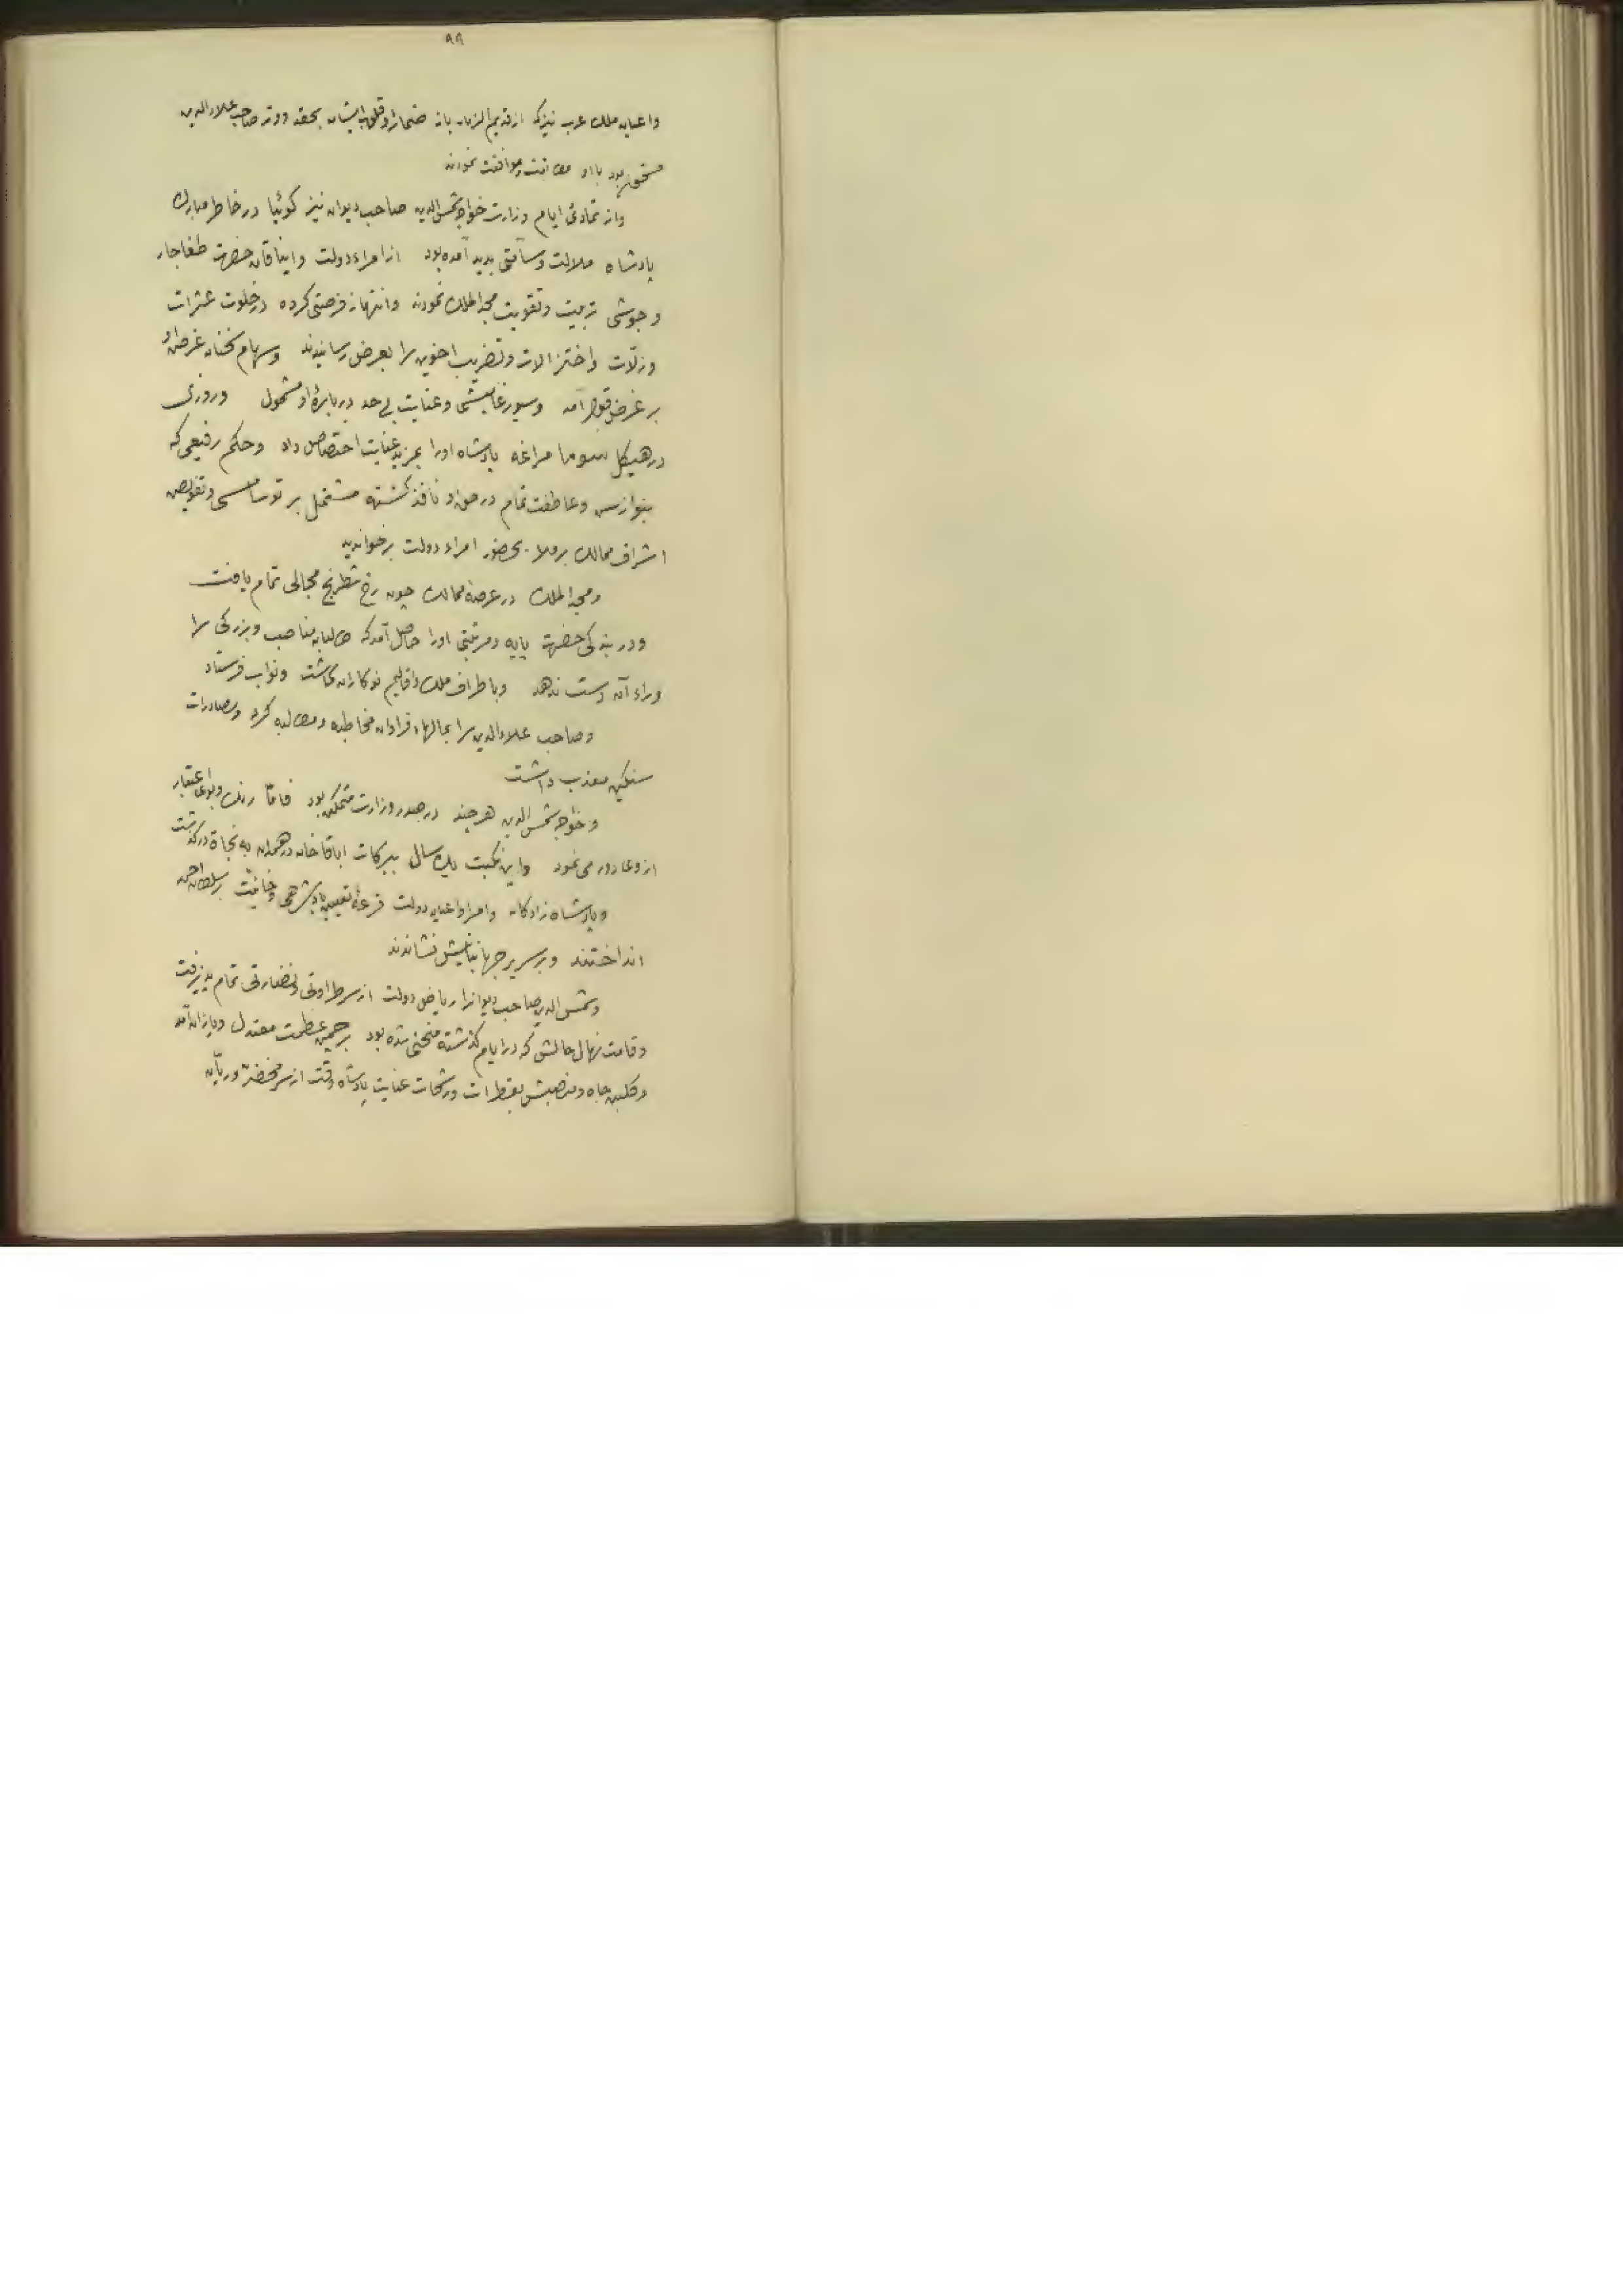 ۹۹
واعیان ملک عرب نیز که از قدیم الزمان باز ضمائر و قلوب ایشان بحقد و وتر صاحب علاءالدین
مشحون بود با او موافقت نمودند
واز تمادی ایام وزارت خواجه شمس الدین صاحب دیوان نیز کوئیا در خاطر مبارک
پادشاه ملالت وسآمتی پدید آمده بود از امراء دولت و ایناقان حضرت طغاجار
و جوشی تربیت وتقویت مجد الملک نمودند وانتهاز فرصتی کرده در خلوت عثرات
وزلّات واختزالات وتضریب اخوین را بعرض رسانیدند وسهام سخنان غرض او
بر غرض قبول آمد وسیورغامیشی وعنایت بی حد در بارۀ او مشمول وروزی
در هیکل مراغه پادشاه اورا بمزید عنایت اختصاص داد وحکم رفیعی که
بنوازش وعاطفت تمام در حق او نافذ کشته مشتمل بر وتفویض
اشراف ممالک برملا بحضور امراء دولت برخواندند
ومجد الملک در عرصۀ ممالک چون رخ شطرنج مجالی تمام یافت
ودر بندکی حضرت پایه ومرتبتی اورا حاصل آمد که طلبۀ مناصب وبزرکی را
وراء آن دست ندهد وباطراف ملک واقالیم نوکاران کماشت ونواب فرستاد
وصاحب علاءالدین را بمالهاء فراوان مخاطبه ومطالبه کرد ومصادرات
سنکین معذب داشت
وخواجه شمس الدین هرچند در صدر وزارت متمکن بود فامّا رنک وبوی اعتبار
ازو عار ورد می نمود واین نکبت یک سال ببرکات اباقا خان در همدان به فجاة درکذشت
وپادشاه زادکان وامرا واعیان دولت قرعۀ تعیین پادشاهی وخانیّت بر سلطان احمد
انداختند وبر سریر جهانبانیش نشاندند
وشمس الدین صاحب دیوانرا ریاض دولت از سر طراوتی ونضارتی تمام پذیرفت
وقامت نهال حالش که در ایام کذشته منحنی شده بود بر چمن عظمت معتدل وبازان آمد
وکلبن جاه ومنصبش بقطرات ورشحات عنایت پادشاه وقت از سر مخضرّ وریّان